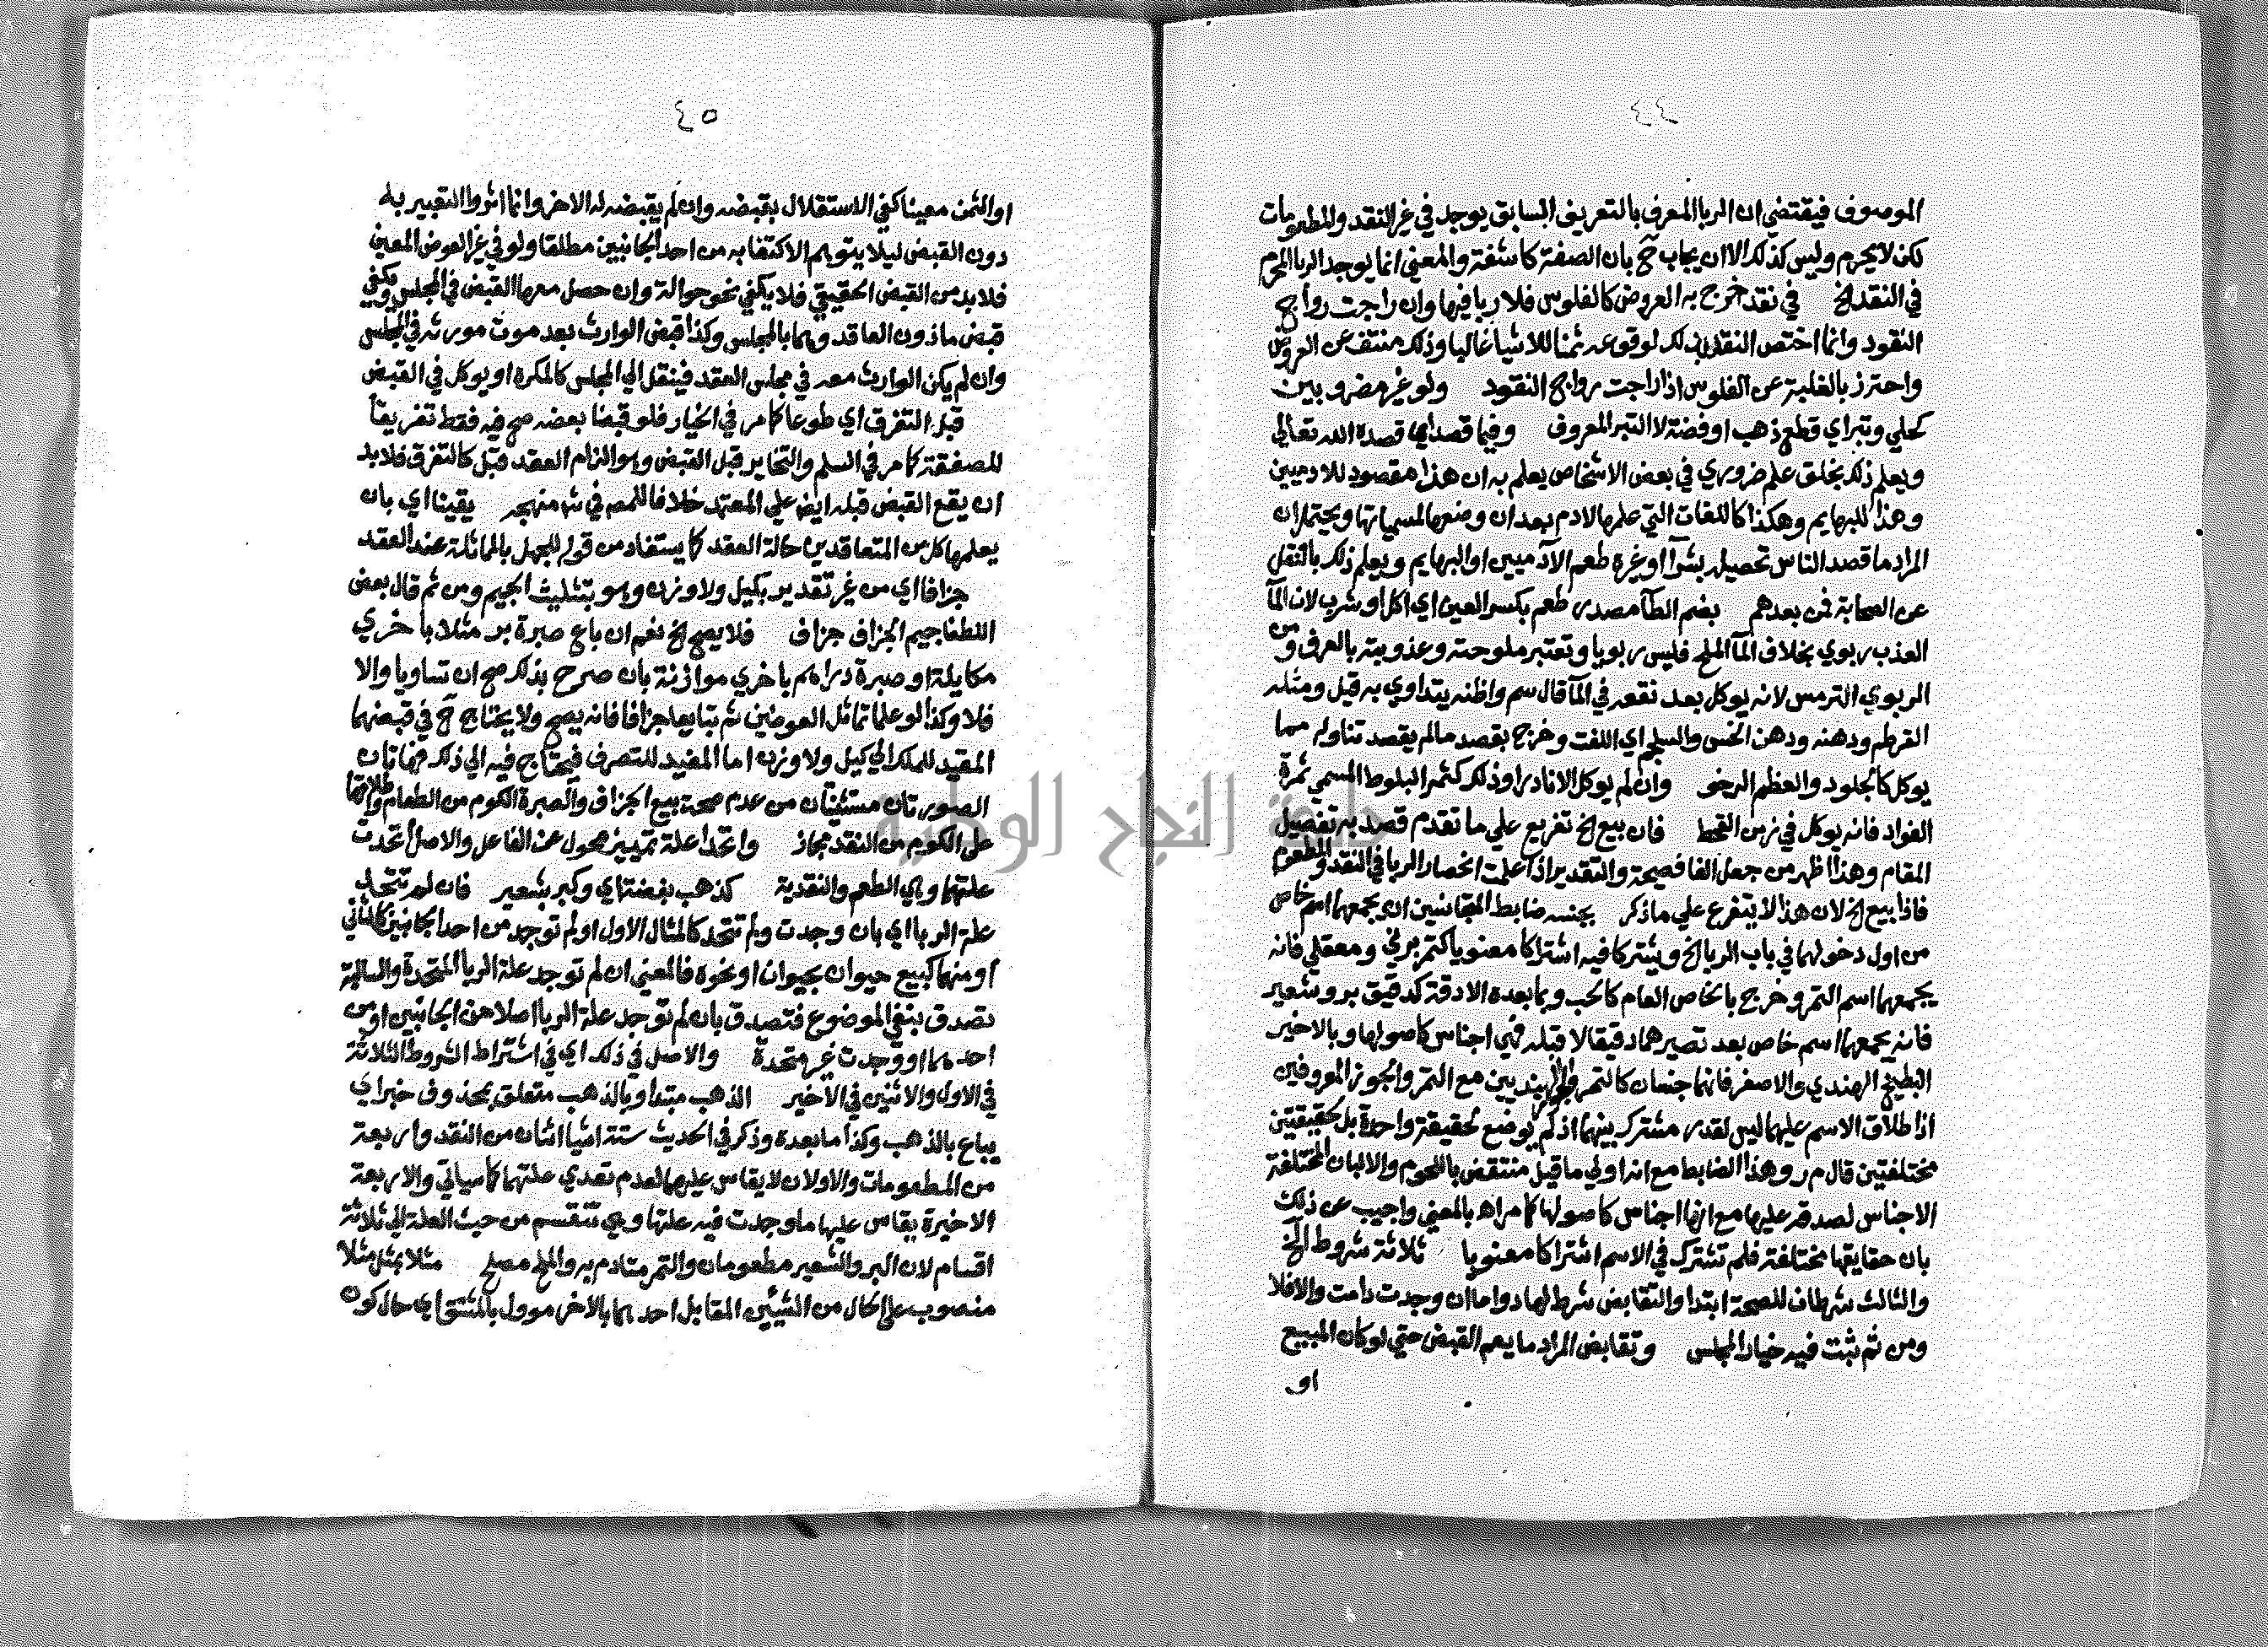 ٤٤
الموصوف فيقتضي ان الربا المعرف بالتعريف السابق يوجد في غير النقد والمطعومات
لكن لا يحرم وليس كذلك الا ان يجاب ح بان الصفة كاشفة والمعني انما يوجد الربا المحرم
في النقد الخ في نقد خرج به العروض كالفلوس فلا ربا فيها وان راجت رواج
النقود وانما اختص النقدان بذلك لوقوعه ثمنا للاشيا غالبا وذلك منتف عن العروض
واحترز بالغلبة عن الفلوس اذا راجت رواج النقود ولو غير مضروبين
كحلي وتبر اي قطع ذهب او فضة لا التبر المعروف وفيما قصد اي قصده الله تعالي
ويعلم ذلك بخلق علم ضروري في بعض الاشخاص يعلم به ان هذا مقصود للادميين
وهذا للبهايم وهكذا كاللغات التي علمها لادم بعد ان وضعها لمسمياتها ويحتمل ان
المراد ما قصد الناس تحصيله بشرا او غيره طعم الآدميين او البهايم ويعلم ذلك بالنقل
عن الصحابة فمن بعدهم بضم الطآ مصدر طعم بكسر العين اي اكل او شرب لان المآ
العذب ربوي بخلاف المآ الملح فليس ربويا وتعتبر ملوحته وعذوبته بالعرف ومن
الربوي الترمس لانه يوكل بعد نقعه في المآ قال سم واظنه يتداوي به قيل ومثله
القرطم ودهنه ودهن الخس والسلجم اي اللفت وخرج بقصد ما لم يقصد تناوله مما
يوكل كالجلود والعظم الرخو وان لم يوكل الا نادرا وذلك كثمر البلوط المسمي ثمرة
الفواد فانه يوكل في زمن القحط فان بيع الخ تفريع علي ما تقدم قصد به تفصيل
المقام وهذا اظهر من جعل الفا فصيحة والتقدير اذا علمت انحصار الربا في النقد والمطعوم
فاذا بيع الخ لان هذا لا يتفرع علي ما ذكر بجنسه ضابط المتجانسين ان يجمعهما اسم خاص
من اول دخولهما في باب الربا الخ ويشتركا فيه اشتراكا معنويا كتمر برني ومعقلي فانه
يجمعهما اسم التمر وخرج بالخاص العام كالحب وبما بعده الادقة كدقيق بر وشعير
فانه يجمعهما اسم خاص بعد تصيرهما دقيقا لا قبله فهي اجناس كاصولها وبالاخير
البطيخ الهندي والاصفر فانهما جنسان كالتمر والجوز الهنديين مع التمر والجوز المعروفين
اذ اطلاق الاسم عليهما ليس لقدر مشترك بينهما اذ لم يوضع لحقيقة واحدة بل لحقيقتين
مختلفتين قال م ر وهذا الضابط مع انه اولي ما قيل منتقض باللحوم والالبان المختلفة
الاجناس لصدقه عليها مع انها اجناس كاصولها كما مر اه بالمعني واجيب عن ذلك
بان حقايقها مختلفة فلم تشترك في الاسم اشتراكا معنويا ثلاثة شروط الخ
والثالث شرطان للصحة ابتدا والتقابض شرط لها دواما ان وجدت دامت والا فلا
ومن ثم ثبت فيه خيار المجلس وتقابض المراد ما يعم القبض حتي لو كان المبيع
او
٤٥
او الثمن معينا كفي الاستقلال بقبضه وان لم يقبضه له الاخر وانما اثروا التعبير به
دون القبض ليلا يتوهم الاكتفا به من احد الجانبين مطلقا ولو في غير العوض المعين
فلا بد من القبض الحقيقي فلا يكفي نحو حوالة وان حصل معها القبض في المجلس ويكفي
قبض ماذون العاقد وهما بالمجلس وكذا قبض الوارث بعد موت مورثه في المجلس
وان لم يكن الوارث معه في مجلس العقد فينقل الي المجلس كالمكره او يوكل في القبض
قبل التفرق اي طوعا كما مر في الخيار فلو قبضا بعضه صح فيه فقط تفريقا
للصفقة كما مر في السلم والتخاير قبل القبض وهو الزام العقد قبل كالتفرق فلا بد
ان يقع القبض قبله ايض علي المعتمد خلافا للمص في شر منهجه يقينا اي بان
يعلمها كل من المتعاقدين حالة العقد كما يستفاد من قوله للجهل بالمماثلة عند العقد
جزافا اي من غير تقدير بكيل ولا وزن وهو بتثليث الجيم ومن ثم قال بعض
اللطفا جيم الجزاف جزاف فلا يصح الخ نعم ان باع صبرة بر مثلا باخري
مكايلة او صبرة دراهم باخري موازنة بان صرح بذلك صح ان تساويا والا
فلا وكذا لو علما تماثل العوضين ثم تبايعا جزافا فانه يصح ولا يحتاج ح في قبضهما
المقيد للملك الي كيل ولا وزن اما المفيد للتصرف فيحتاج فيه الي ذلك فهاتان
الصورتان مستثنيان من عدم صحة بيع الجزاف والصبرة الكوم من الطعام واطلاقها
علي الكوم من النقد مجاز واتحدا علة تمييز محول عن الفاعل والاصل اتحدت
علتهما وهي الطعم والنقدية كذهب بفضة اي وكبر بشعير فان لم تتحد
علة الربا اي بان وجدت ولم تتحد كالمثال الاول او لم توجد من احد الجانبين كالثاني
او منهما كبيع حيوان بحيوان او نحوه فالمعني ان لم توجد علة الربا المتحدة والسالبة
تصدق بنفي الموضوع فتصدق بان لم توجد علة الربا اصلا من الجانبين او من
احدهما او وجدت غير متحدة والاصل في ذلك اي في اشتراط الشروط الثلاثة
في الاول والاثنين في الاخير الذهب مبتدا وبالذهب متعلق بمحذوف خبر اي
يباع بالذهب وكذا ما بعده وذكر في الحديث ستة اشيا اثنان من النقد واربعة
من المطعومات والاولان لا يقاس عليهما لعدم تعدي علتهما كما سياتي والاربعة
الاخيرة يقاس عليها ما وجدت فيه علتها وهي تنقسم من حيث العلة الي ثلاثة
اقسام لان البر والشعير مطعومان والتمر متادم به والملح مصلح مثلا بمثل مثلا
منصوب علي الحال من الشيئين المقابل احدهما بالاخر موول بالمشتق اي حال كون